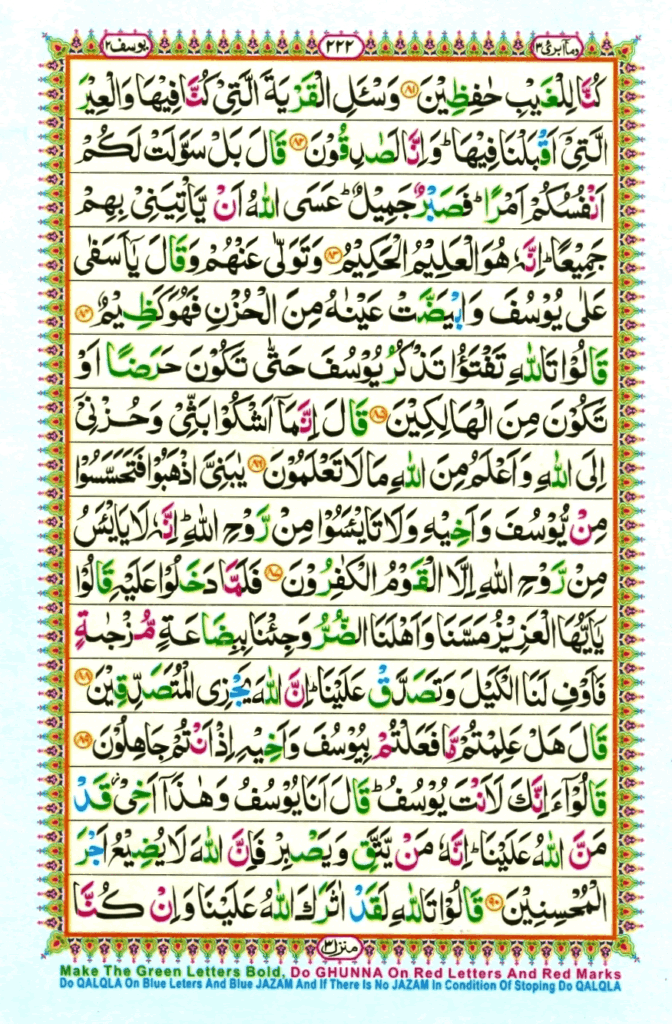 وما ابرئ ١٣ ٢٢٢ یوسف ١٢
كُنَّا لِلْغَيْبِ حٰفِظِيْنَ ﴿٨١﴾ وَسْـَٔلِ الْقَرْيَةَ الَّتِىْ كُنَّا فِيْهَا وَالْعِيْرَ
الَّتِىْۤ اَقْبَلْنَا فِيْهَا ؕ وَاِنَّا لَصٰدِقُوْنَ ﴿٨٢﴾ قَالَ بَلْ سَوَّلَتْ لَكُمْ
اَنْفُسُكُمْ اَمْرًا ؕ فَصَبْرٌ جَمِيْلٌ ؕ عَسَى اللّٰهُ اَنْ يَّاْتِيَنِىْ بِهِمْ
جَمِيْعًا ؕ اِنَّهٗ هُوَ الْعَلِيْمُ الْحَكِيْمُ ﴿٨٣﴾ وَتَوَلّٰى عَنْهُمْ وَقَالَ يٰۤاَسَفٰى
عَلٰى يُوْسُفَ وَابْيَضَّتْ عَيْنٰهُ مِنَ الْحُزْنِ فَهُوَ كَظِيْمٌ ﴿٨٤﴾
قَالُوْا تَاللّٰهِ تَفْتَؤُا تَذْكُرُ يُوْسُفَ حَتّٰى تَكُوْنَ حَرَضًا اَوْ
تَكُوْنَ مِنَ الْهَالِكِيْنَ ﴿٨٥﴾ قَالَ اِنَّمَاۤ اَشْكُوْا بَثِّىْ وَحُزْنِىْۤ
اِلَى اللّٰهِ وَاَعْلَمُ مِنَ اللّٰهِ مَا لَا تَعْلَمُوْنَ ﴿٨٦﴾ يٰبَنِىَّ اذْهَبُوْا فَتَحَسَّسُوْا
مِنْ يُّوْسُفَ وَاَخِيْهِ وَلَا تَايْـَٔسُوْا مِنْ رَّوْحِ اللّٰهِ ؕ اِنَّهٗ لَا يَايْـَٔسُ
مِنْ رَّوْحِ اللّٰهِ اِلَّا الْقَوْمُ الْكٰفِرُوْنَ ﴿٨٧﴾ فَلَمَّا دَخَلُوْا عَلَيْهِ قَالُوْا
يٰۤاَيُّهَا الْعَزِيْزُ مَسَّنَا وَاَهْلَنَا الضُّرُّ وَجِئْنَا بِبِضَاعَةٍ مُّزْجٰٮةٍ
فَاَوْفِ لَنَا الْكَيْلَ وَتَصَدَّقْ عَلَيْنَا ؕ اِنَّ اللّٰهَ يَجْزِى الْمُتَصَدِّقِيْنَ ﴿٨٨﴾
قَالَ هَلْ عَلِمْتُمْ مَّا فَعَلْتُمْ بِيُوْسُفَ وَاَخِيْهِ اِذْ اَنْتُمْ جَاهِلُوْنَ ﴿٨٩﴾
قَالُوْۤا ءَاِنَّكَ لَاَنْتَ يُوْسُفُ ؕ قَالَ اَنَا يُوْسُفُ وَهٰذَاۤ اَخِىْ ؗ قَدْ
مَنَّ اللّٰهُ عَلَيْنَا ؕ اِنَّهٗ مَنْ يَّتَّقِ وَيَصْبِرْ فَاِنَّ اللّٰهَ لَا يُضِيْعُ اَجْرَ
الْمُحْسِنِيْنَ ﴿٩٠﴾ قَالُوْا تَاللّٰهِ لَقَدْ اٰثَرَكَ اللّٰهُ عَلَيْنَا وَاِنْ كُنَّا
منزل ٣
Make The Green Letters Bold, Do GHUNNA On Red Letters And Red Marks
Do QALQLA On Blue Leters And Blue JAZAM And If There Is No JAZAM In Condition Of Stoping Do QALQLA